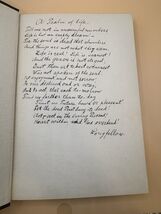 A Psalm of Life.
Tell me not in mournful numbers
Life is but an empty dream
For the soul is dead that slumbers
And things are not what they seem.
Life is real! Life is earnest
And the grave is not its goal
Dust thou art to dust returnest
Was not spoken of the soul.
Not enjoyment and not sorrow
Is our destined end or way,
But to act, that each to-morrow
Find us farther than to-day
Trust no Future, howe'er pleasant
Let the dead Past bury its dead
Act, act in the living Present!
Heart within and God overhead
Longfellow